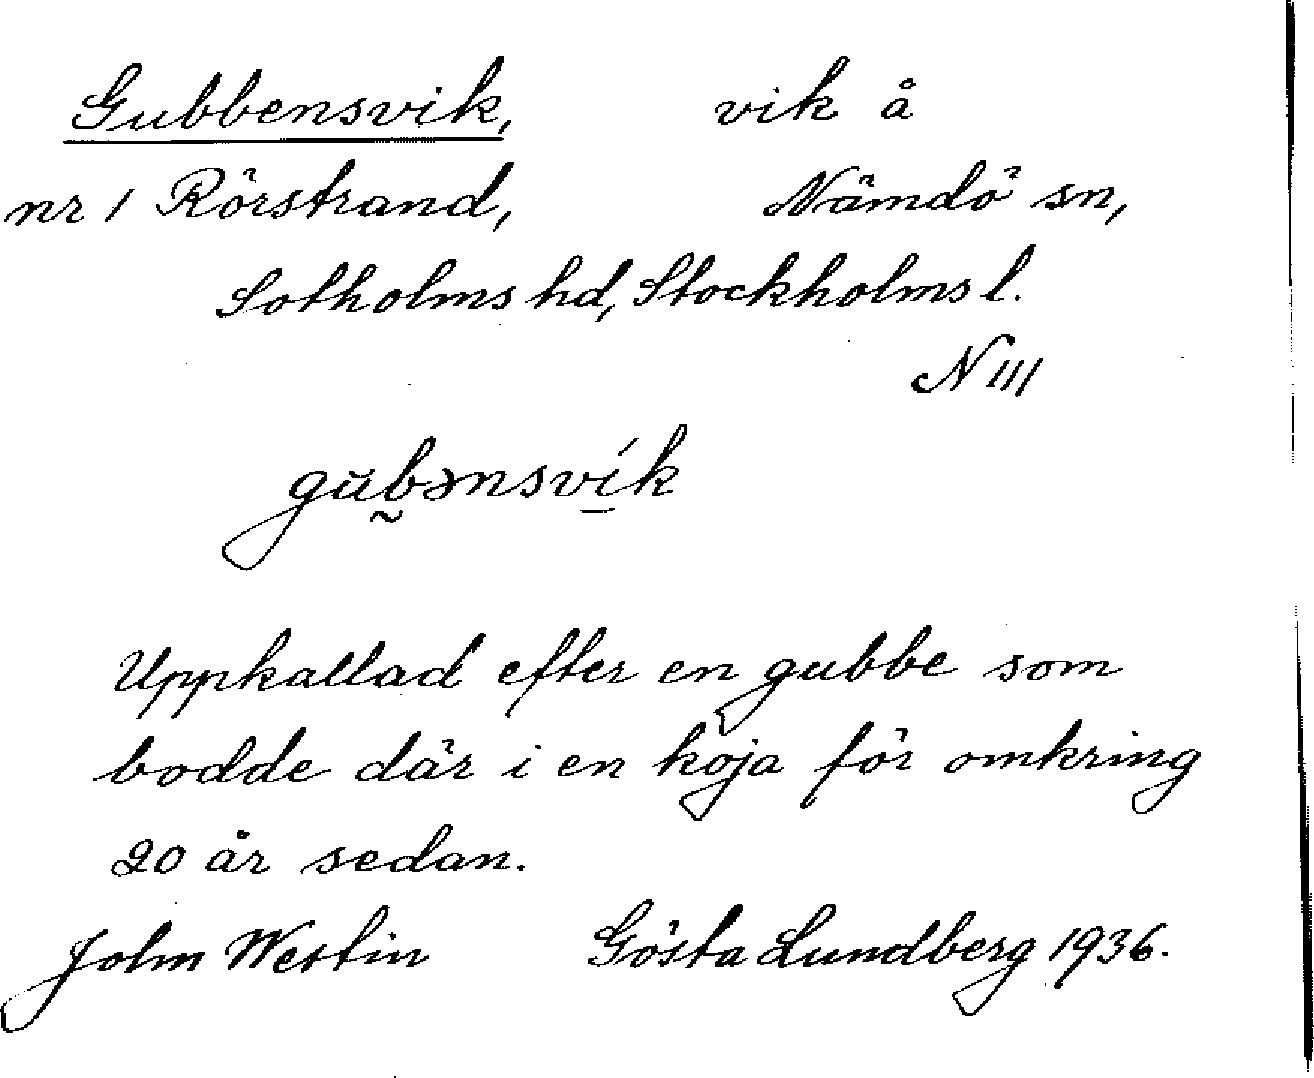 Gubbensvik, vik å
nr 1 Rörstrand, Nämdö sn,
Sotholms hd, Stockholms l.
N III
gŭb̰ənsví̱k
Uppkallad efter en gubbe som
bodde där i en koja för omkring
20 år sedan.
John Westin Gösta Lundberg 1936.